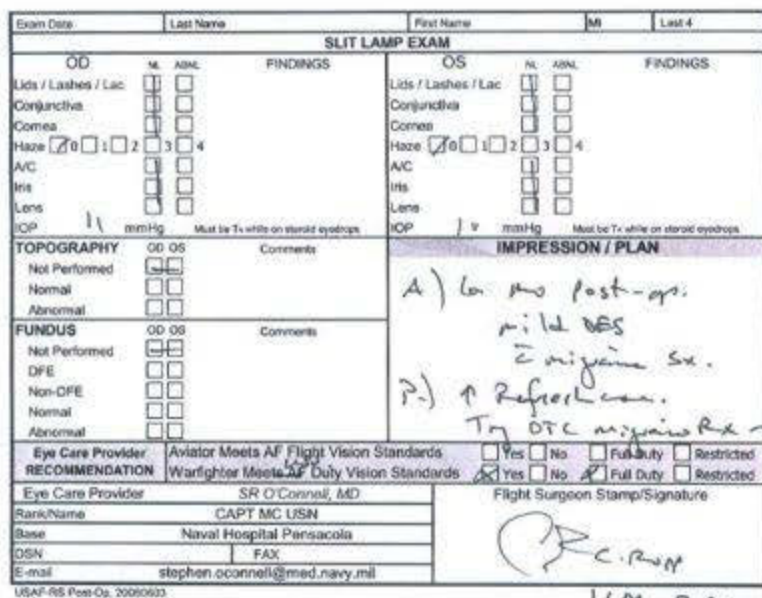 Exam Date Last Name First Name MI Last 4
SLIT LAMP EXAM
OD NL ABNL FINDINGS OS NL ABNL FINDINGS
Lids / Lashes / Lac Lids / Lashes / Lac
Conjunctiva Conjunctiva
Cornea Cornea
Haze 0 1 2 3 4 Haze 0 1 2 3 4
A/C A/C
Iris Iris
Lens Lens
IOP 11 mmHg Must be Tx while on steroid eyedrops IOP mmHg Must be Tx while on steroid eyedrops
TOPOGRAPHY OD OS Comments
Not Performed
Normal
Abnormal
FUNDUS OD OS Comments
Not Performed
DFE
Non-DFE
Normal
Abnormal
IMPRESSION / PLAN
A) 6 mo post-op.
mild DES
c migraine Sx.
P.) ↑ Refresh
Try OTC migraine Rx
Eye Care Provider
RECOMMENDATION
Aviator Meets AF Flight Vision Standards Yes No Full Duty Restricted
Warfighter Meets AF Duty Vision Standards Yes No Full Duty Restricted
Eye Care Provider SR O'Connell, MD
Rank/Name CAPT MC USN
Base Naval Hospital Pensacola
DSN FAX
E-mail stephen.oconnell@med.navy.mil
Flight Surgeon Stamp/Signature
USAF-RS Post-Op, 20060603